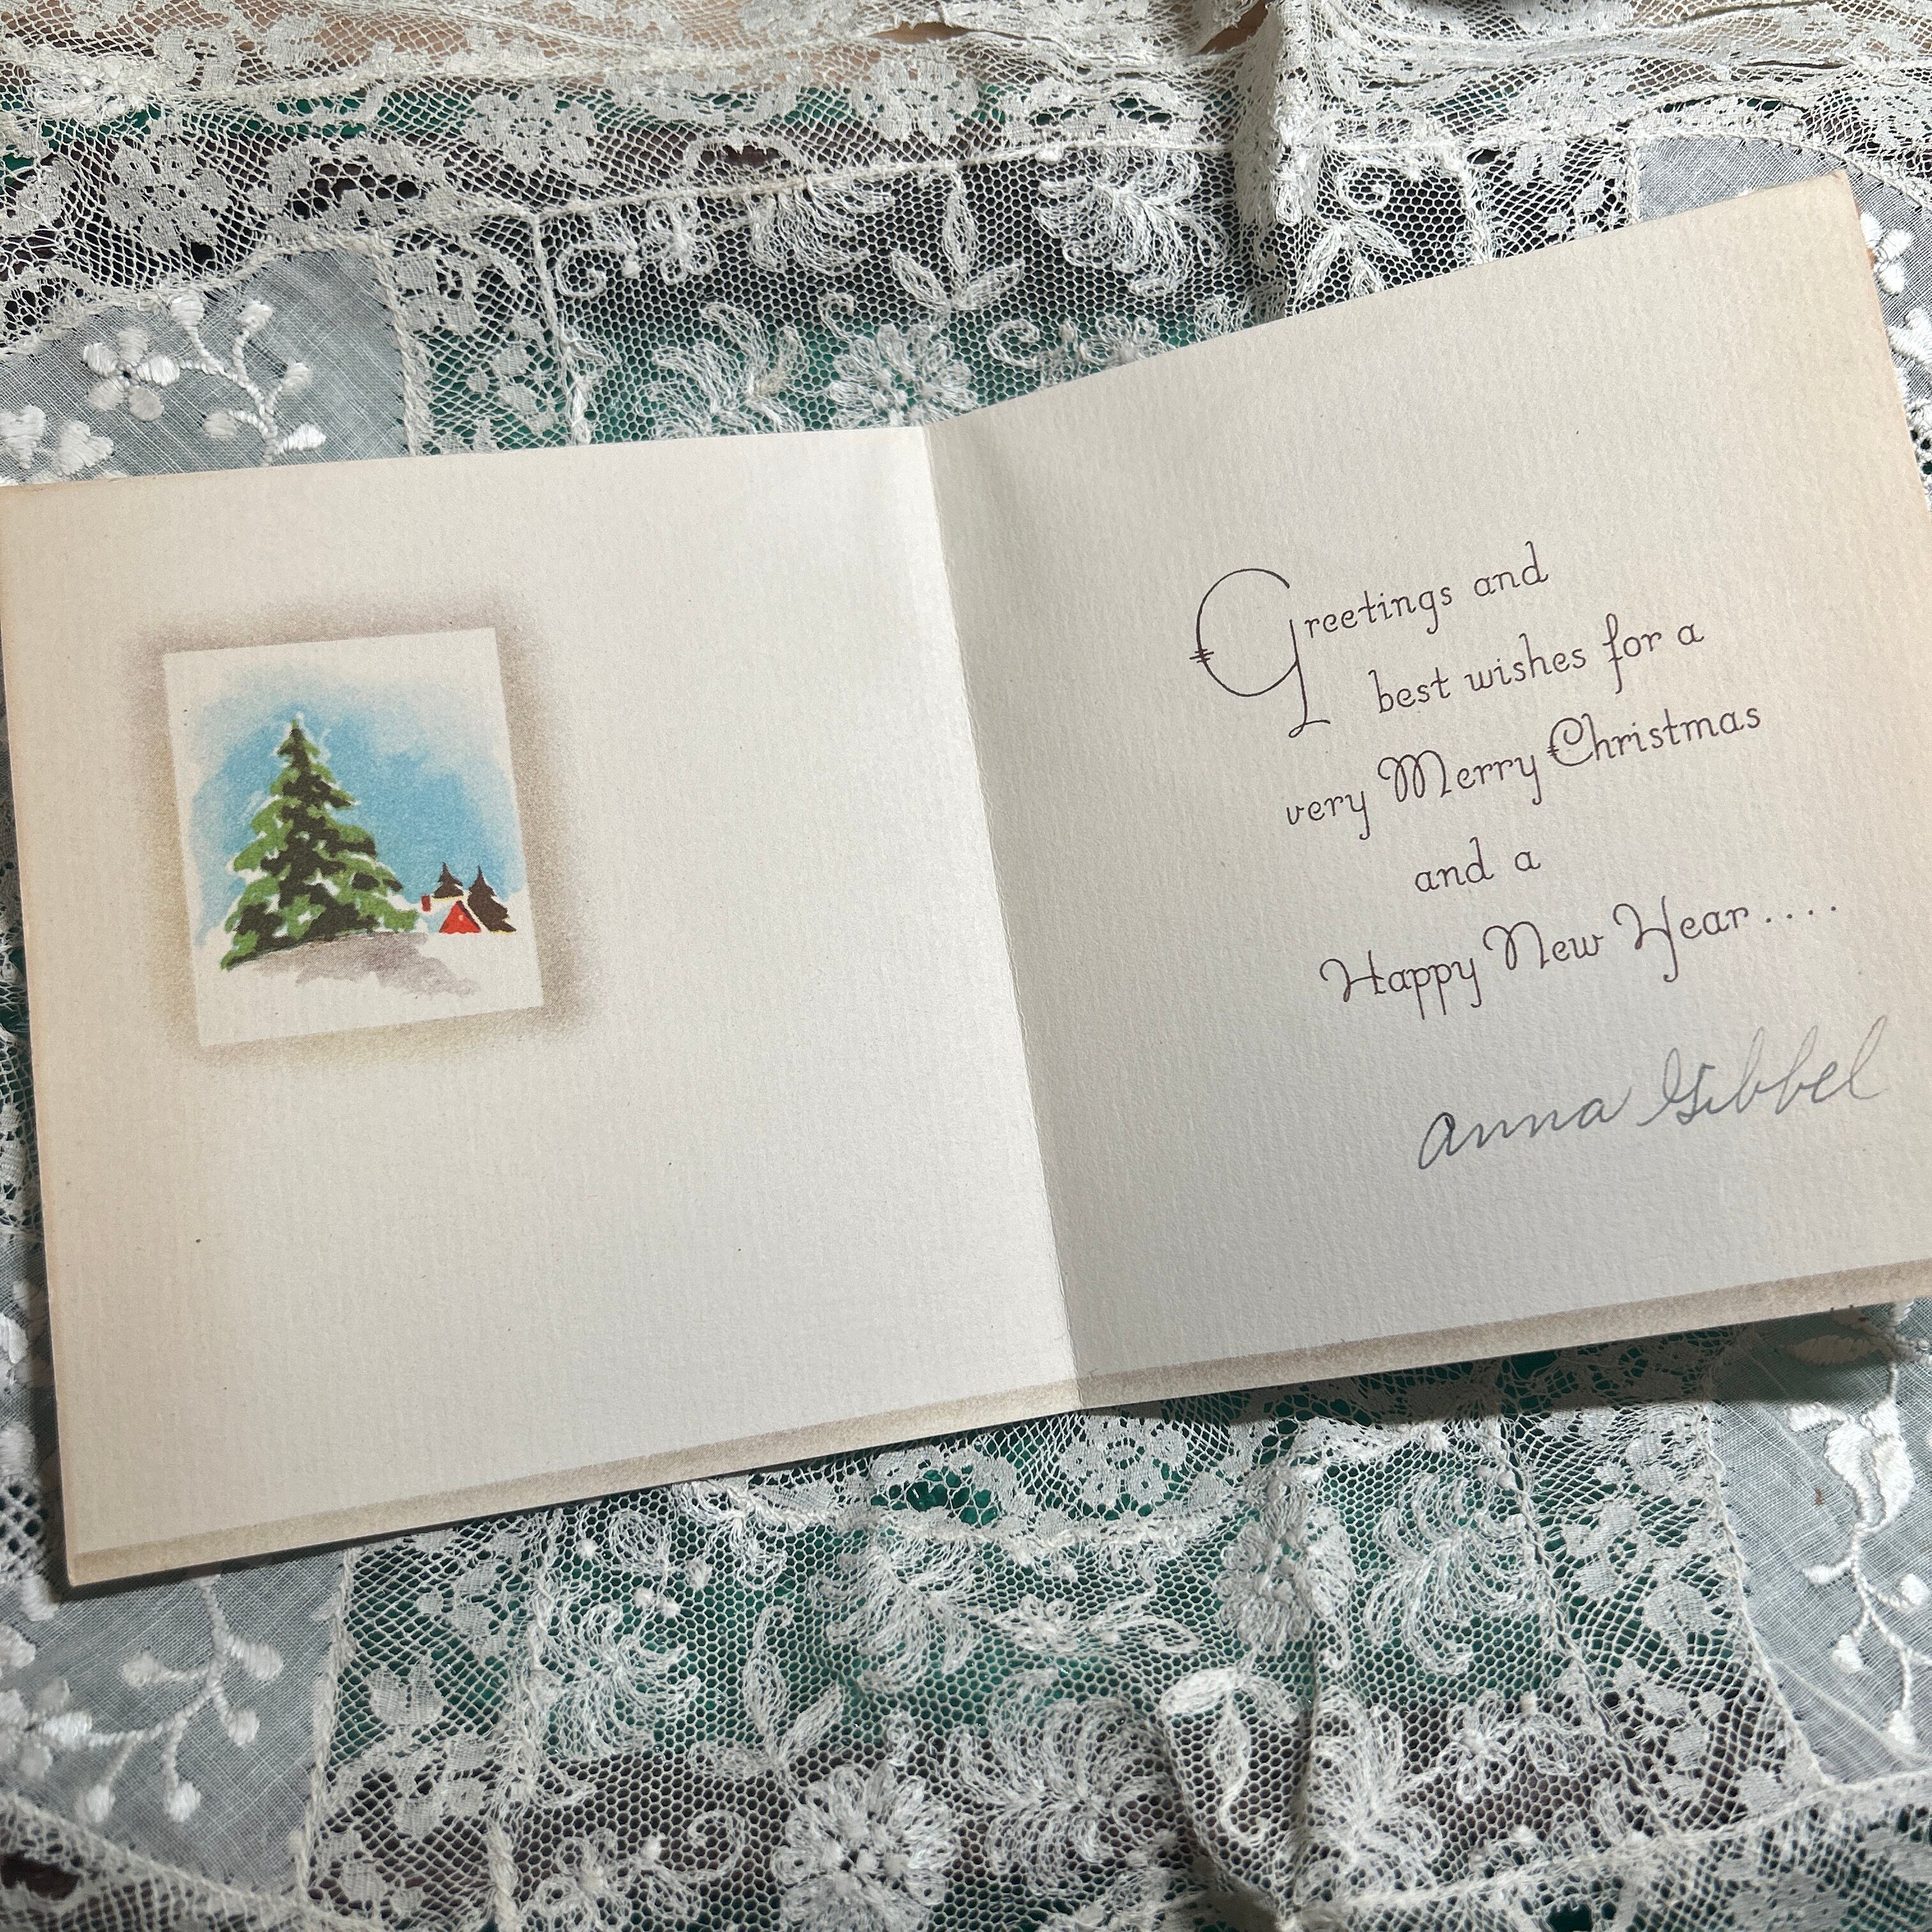 Greetings and
best wishes for a
very Merry Christmas
and a
Happy New Year....
Anna Gibbel